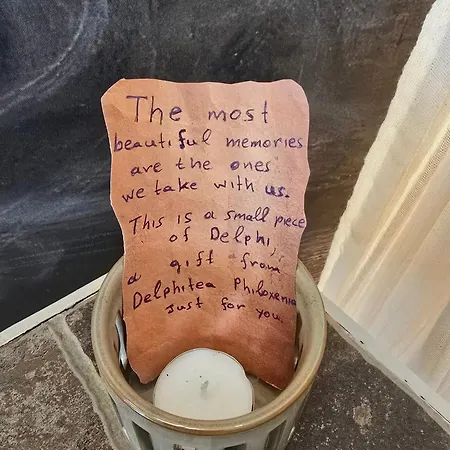 The most
beautiful memories
are the ones
we take with us.
This is a small piece
of Delphi,
a gift from
Delphitea Philoxenia
Just for you.